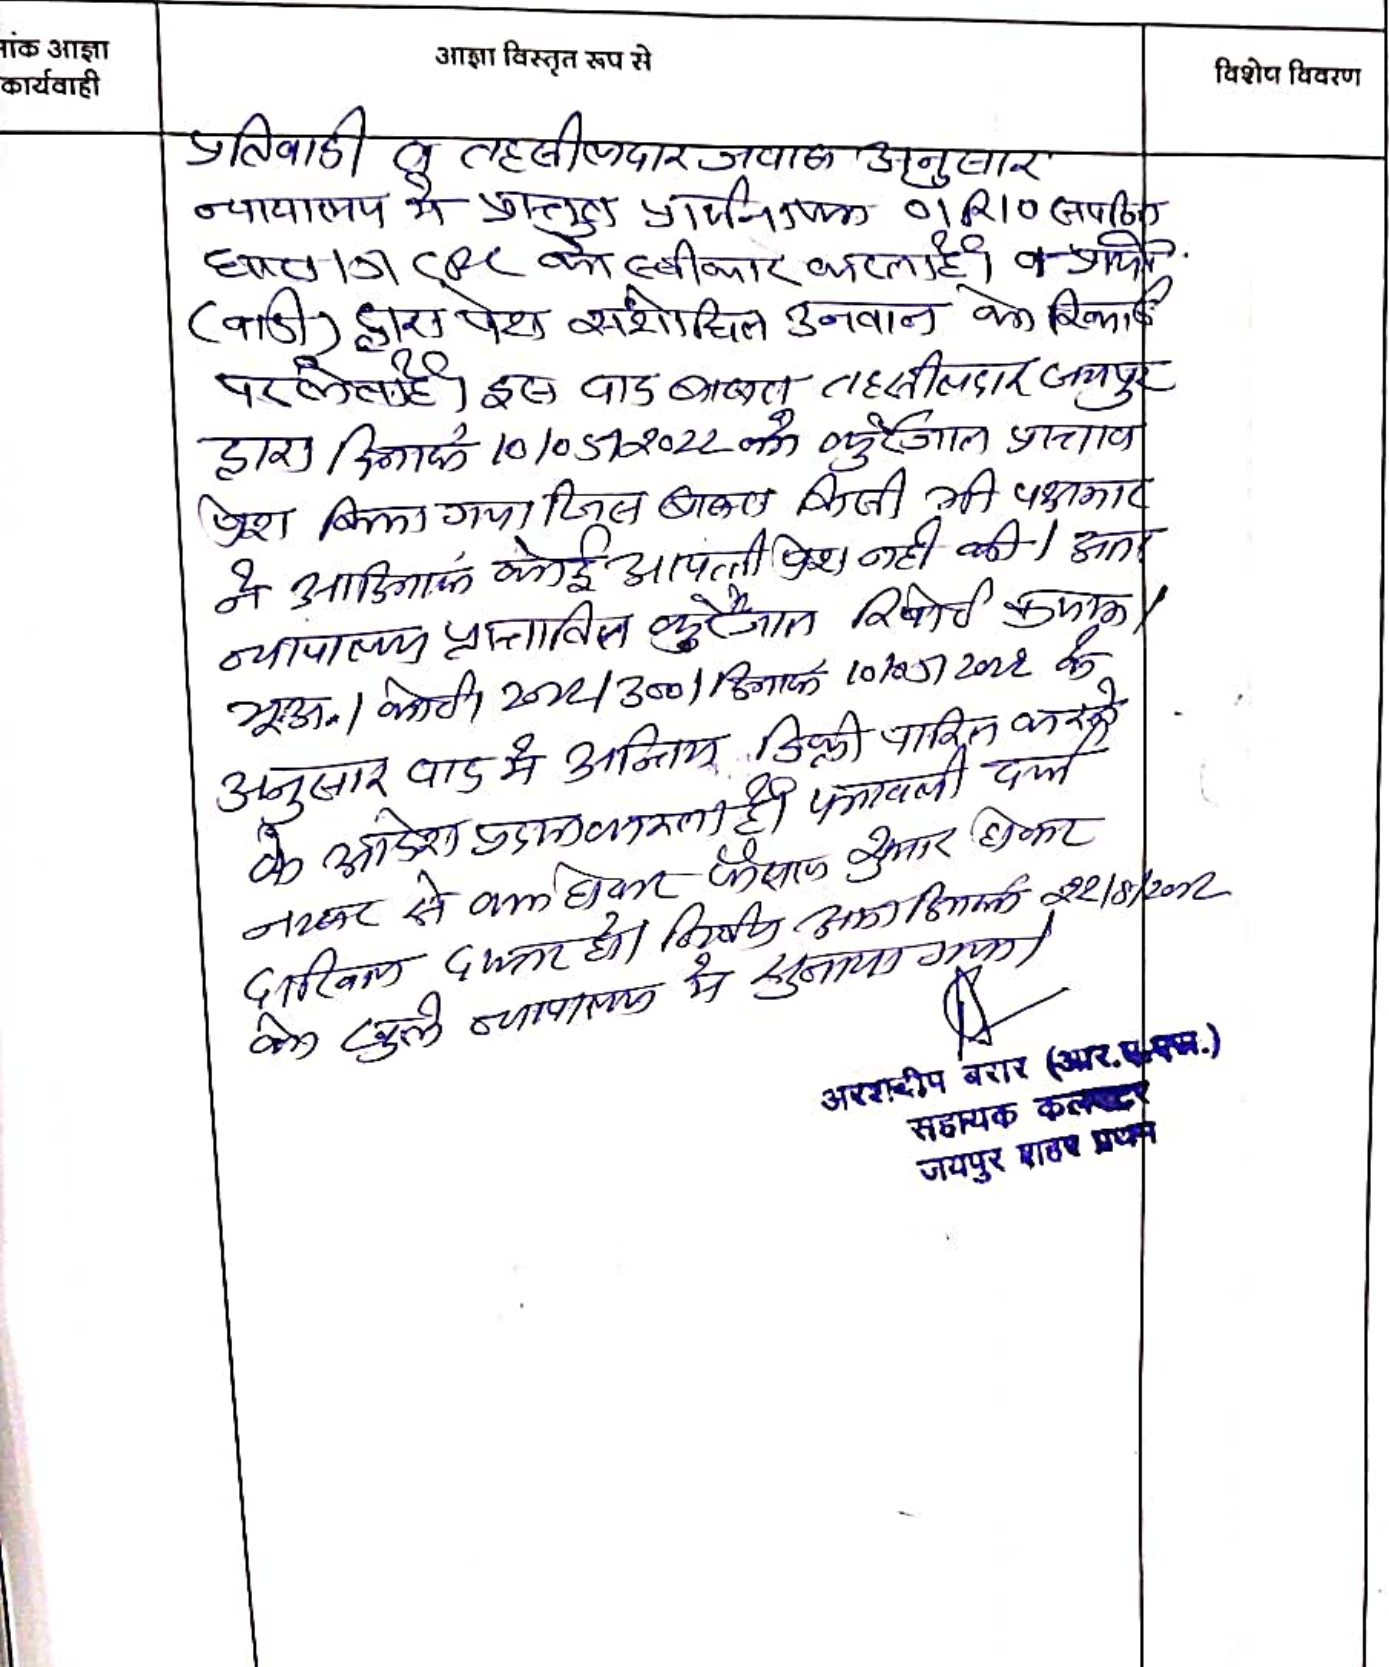 नांक आज्ञा
कार्यवाही
आज्ञा विस्तृत रूप से
विशेष विवरण
प्रतिवादी व तहसीलदार जवाब अनुसार
न्यायालय मे प्रस्तुत प्रार्थनापत्र 01 R10 सपठित
धारा 151 CPC को स्वीकार करता है। व प्रार्थी
(वादी) द्वारा पेश संशोधित उनवान को रिकार्ड
पर लेता है। इस वाद बाबत तहसीलदार जयपुर
द्वारा दिनांक 10/05/2022 को कुर्रेजात प्रस्ताव
पेश किया गया जिस बाबत किसी भी पक्षकार
ने आदिनांक कोई आपत्ती पेश नही की। अतः
न्यायालय प्रस्तावित कुर्रेजात रिपोर्ट क्रमांक/
भू.अ./ 2022/300/ दिनांक 10/05/2022 के
अनुसार वाद मे अन्तिम डिक्री पारित करने
के आदेश प्रदान करता है। पत्रावली दर्ज
नम्बर से कम होकर फैसल शुमार होकर
दाखिल दफ्तर हो। निर्णय आज दिनांक 22/8/2022
को खुले न्यायालय मे सुनाया गया।
अरशदीप बरार (आर.ए.एस.)
सहायक कलक्टर
जयपुर शहर प्रथम